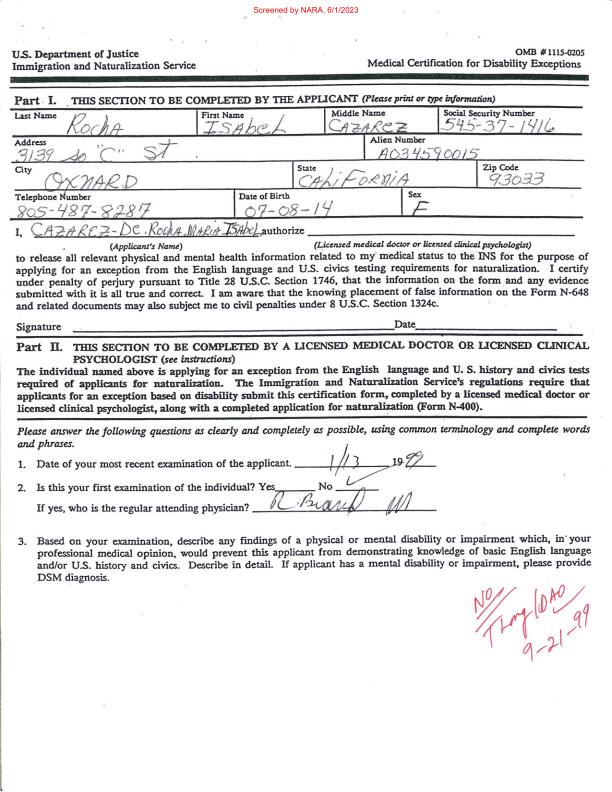 Screened by NARA, 6/1/2023
U.S. Department of Justice
Immigration and Naturalization Service
OMB #1115-0205
Medical Certification for Disability Exceptions
Part I. THIS SECTION TO BE COMPLETED BY THE APPLICANT (Please print or type information)
Last Name First Name Middle Name Social Security Number
Rocha ISAbeL CAZAREZ 545-37-1416
Address Alien Number
3139 so "C" St. A034590015
City State Zip Code
OXNARD CALiFORNiA 93033
Telephone Number Date of Birth Sex
805-487-8287 07-08-14 F
I, CAZAREZ-De.Rocha.MARiA ISAbel, authorize
(Applicant's Name) (Licensed medical doctor or licensed clinical psychologist)
to release all relevant physical and mental health information related to my medical status to the INS for the purpose of
applying for an exception from the English language and U.S. civics testing requirements for naturalization. I certify
under penalty of perjury pursuant to Title 28 U.S.C. Section 1746, that the information on the form and any evidence
submitted with it is all true and correct. I am aware that the knowing placement of false information on the Form N-648
and related documents may also subject me to civil penalties under 8 U.S.C. Section 1324c.
Signature Date
Part II. THIS SECTION TO BE COMPLETED BY A LICENSED MEDICAL DOCTOR OR LICENSED CLINICAL
PSYCHOLOGIST (see instructions)
The individual named above is applying for an exception from the English language and U. S. history and civics tests
required of applicants for naturalization. The Immigration and Naturalization Service's regulations require that
applicants for an exception based on disability submit this certification form, completed by a licensed medical doctor or
licensed clinical psychologist, along with a completed application for naturalization (Form N-400).
Please answer the following questions as clearly and completely as possible, using common terminology and complete words
and phrases.
1. Date of your most recent examination of the applicant. 1/13 1999
2. Is this your first examination of the individual? Yes No ✓
If yes, who is the regular attending physician? R.
3. Based on your examination, describe any findings of a physical or mental disability or impairment which, in your
professional medical opinion, would prevent this applicant from demonstrating knowledge of basic English language
and/or U.S. history and civics. Describe in detail. If applicant has a mental disability or impairment, please provide
DSM diagnosis.
NO
/DAO
9-21-99